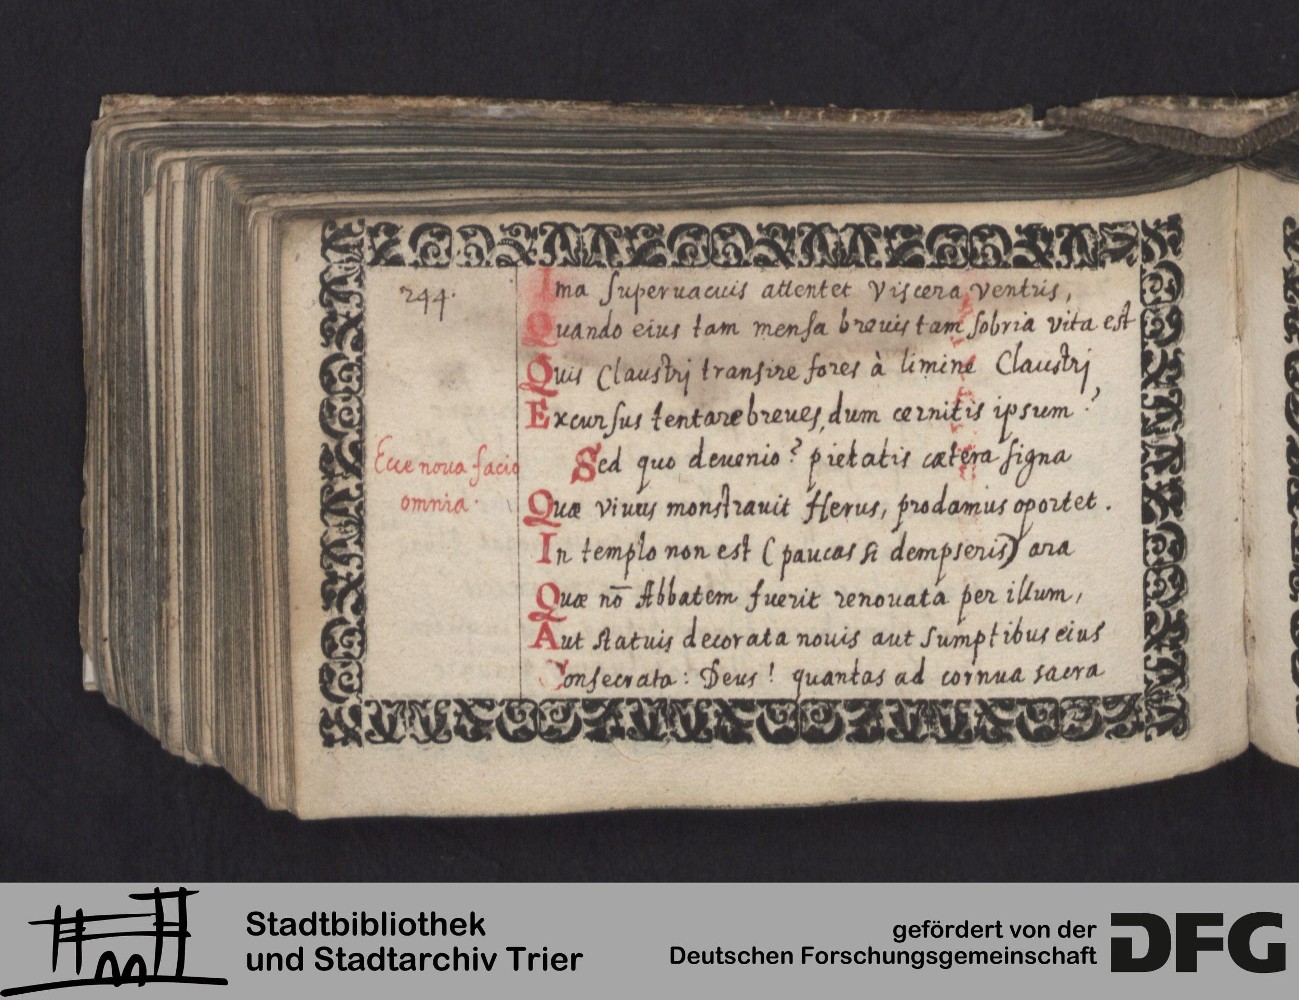 244.
Ima supervacuis attentet viscera ventris,
Quando eius tam mensa breuis tam sobria vita est
Quis Claustrj transire fores à limine Claustrj
Excursus tentare breues, dum cernitis ipsum?
Sed quo deuenio? pietatis cætera signa
Ecce noua facio
omnia.
Quæ viuus monstrauit Herus, prodamus oportet.
In templo non est (paucas si dempseris) ara
Quæ nō Abbatem fuerit renouata per illum,
Aut statuis decorata nouis aut sumptibus eius
Consecrata: Deus! quantas ad cornua sacra
Stadtbibliothek
und Stadtarchiv Trier
gefördert von der
Deutschen Forschungsgemeinschaft
DFG